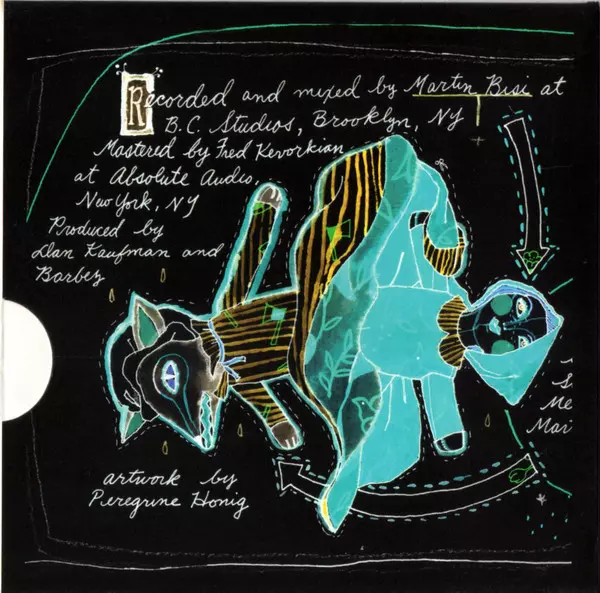 Recorded and mixed by Martin Bisi at
B.C. Studios, Brooklyn, NY
Mastered by Fred Kevorkian
at Absolute Audio,
New York, NY
Produced by
Dan Kaufman and
Barbez
S
Me
Mari
artwork by
Peregrine Honig